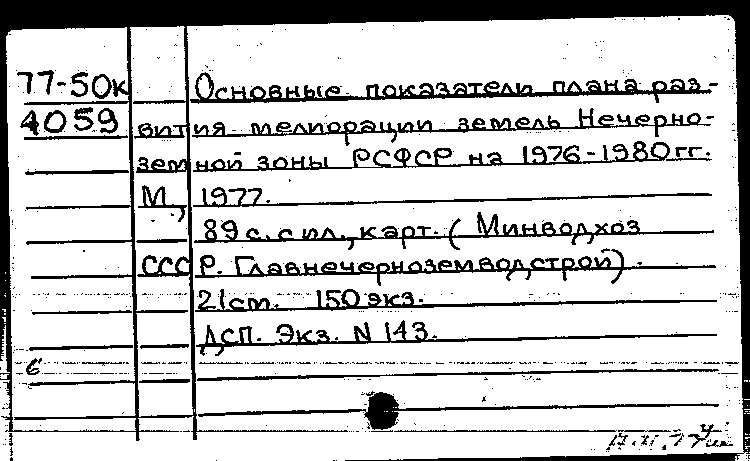 77-50к Основные показатели плана раз-
4059 вития мелиорации земель Нечерно-
земной зоны РСФСР на 1976-1980гг.
М., 1977.
89 с. с ил., карт. (Минводхоз
СССР. Главнечерноземводстрой).
21см. 150 экз.
ДСП. Экз. N 143.